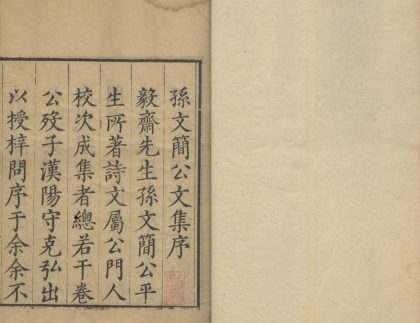 孫文簡公文集序
毅齋先生孫文簡公平
生所著詩文屬公門人
校次成集者總若干卷
公歿子漢陽守克弘出
以授梓問序于余余不